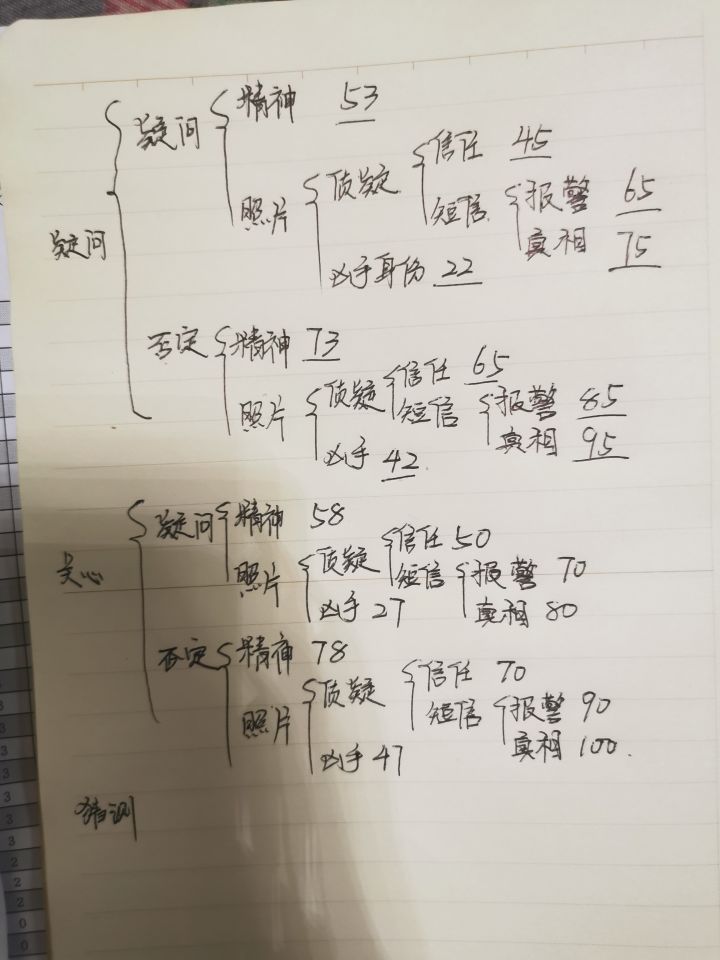 疑问 精神 53
侦疑 信任 45
照片 短信 报警 65
疑问 真相 75
凶手身份 22
否定 精神 73
侦疑 信任 65
照片 短信 报警 85
凶手 42 真相 95
关心 疑问 精神 58
侦疑 信任 50
照片 短信 报警 70
凶手 27 真相 80
否定 精神 78
侦疑 信任 70
照片 短信 报警 90
凶手 47 真相 100.
猜测
3
3
3
3
2
2
0
0